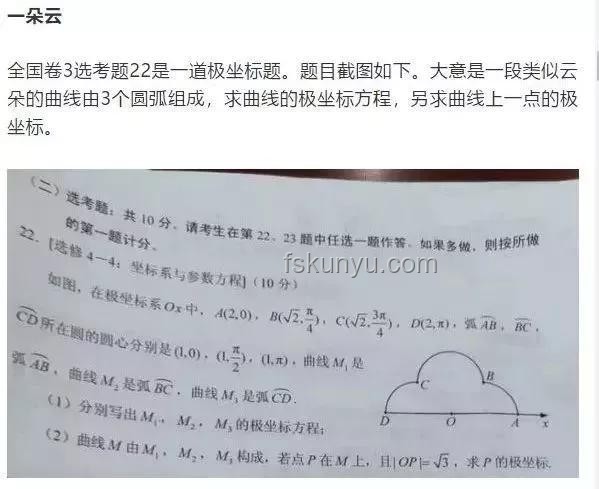 一朵云
全国卷3选考题22是一道极坐标题。题目截图如下。大意是一段类似云
朵的曲线由3个圆弧组成，求曲线的极坐标方程，另求曲线上一点的极
坐标。
（二）选考题：共 10 分。请考生在第 22、23 题中任选一题作答。如果多做，则按所做
的第一题计分。
fskunyu.com
22. [选修 4—4：坐标系与参数方程]（10 分）
如图，在极坐标系Ox中，A(2,0)，B(√2,π/4)，C(√2,3π/4)，D(2,π)，弧AB，BC，
CD所在圆的圆心分别是(1,0)，(1,π/2)，(1,π)，曲线M₁是
弧AB，曲线M₂是弧BC，曲线M₃是弧CD.
（1）分别写出M₁，M₂，M₃的极坐标方程；
（2）曲线M由M₁，M₂，M₃构成，若点P在M上，且|OP|=√3，求P的极坐标.
C
B
D
O
A
x